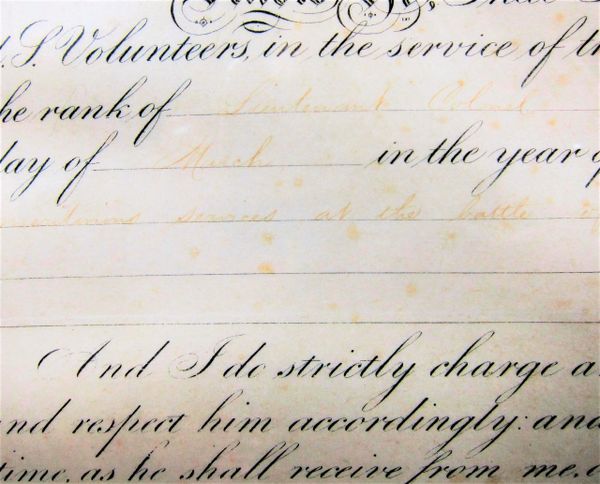 Know Ye, That
S. Volunteers, in the service of th
he rank of Lieutenant Colonel
day of March in the year of
meritorious services at the battle of
And I do strictly charge a
nd respect him accordingly: and
time, as he shall receive from me, o